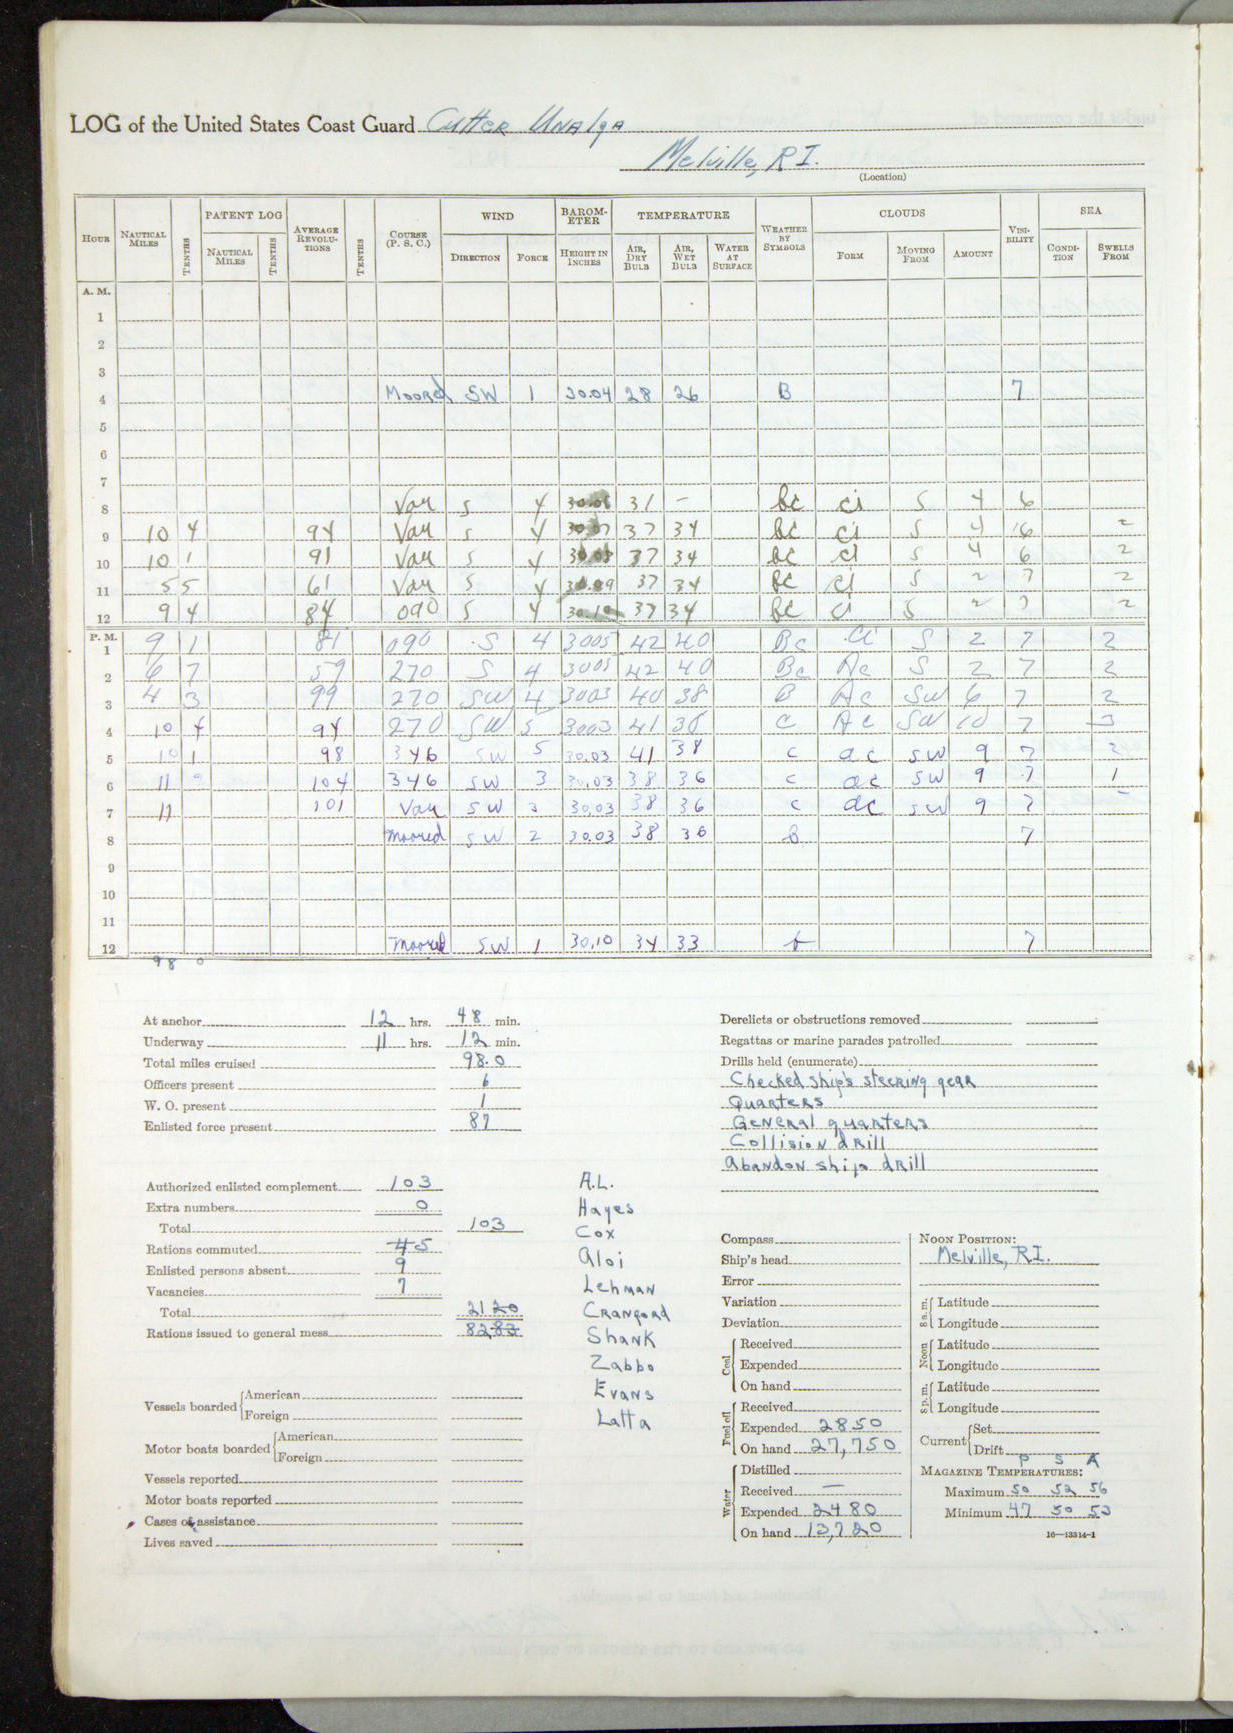 LOG of the United States Coast Guard Cutter Unalga
Melville, R.I.
(Location)
HOUR NAUTICAL MILES TENTHS PATENT LOG NAUTICAL MILES TENTHS AVERAGE REVOLU-TIONS TENTHS COURSE (P. S. C.) WIND DIRECTION FORCE BAROM-ETER HEIGHT IN INCHES TEMPERATURE AIR, DRY BULB AIR, WET BULB WATER AT SURFACE WEATHER BY SYMBOLS CLOUDS FORM MOVING FROM AMOUNT VISI-BILITY SEA CONDI-TION SWELLS FROM
A. M.
1
2
3
4 Moored SW 1 30.04 28 26 B 7
5
6
7
8 Var S 4 31 — bc ci S 4 6
9 10 4 94 Var S 4 37 34 bc ci S 4 6 2
10 10 1 91 Var S 4 30.03 37 34 bc ci S 4 6 2
11 5 5 61 Var S 4 30.09 37 34 bc ci S 2 7 2
12 9 4 84 090 S 4 30.10 37 34 bc ci S 2 7 2
P. M.
1 9 1 81 090 S 4 3005 42 40 Bc Ci S 2 7 2
2 6 7 59 270 S 4 3005 42 40 Bc Ac S 2 7 2
3 4 3 99 270 SW 4 3003 40 38 B Ac SW 6 7 2
4 10 4 94 270 SW 5 3003 41 38 C Ac SW 10 7 3
5 10 1 98 346 SW 5 30.03 41 38 c ac SW 9 7 2
6 11 346 SW 3 30.03 38 36 c ac SW 9 7 1
7 11 101 Var SW 3 30.03 38 36 c ac SW 9 7 —
8 moored SW 2 30.03 38 36 B 7
9
10
11
12 moored SW 1 30.10 34 33 b 7
98 0
At anchor 12 hrs. 48 min.
Underway 11 hrs. 12 min.
Total miles cruised 98.0
Officers present 6
W. O. present 1
Enlisted force present 87
Authorized enlisted complement 103
Extra numbers 0
Total 103
Rations commuted 45
Enlisted persons absent 9
Vacancies 7
Total 21 20
Rations issued to general mess 82 83
Vessels boarded American
Foreign
Motor boats boarded American
Foreign
Vessels reported
Motor boats reported
Cases of assistance
Lives saved
A.L.
Hayes
Cox
Aloi
Lehman
Shank
Zabbo
Evans
Latta
Derelicts or obstructions removed
Regattas or marine parades patrolled
Drills held (enumerate)
Checked ship's steering gear
Quarters
General quarters
Collision drill
Abandon ship drill
Compass
Ship's head
Error
Variation
Deviation
Coal Received
Expended
On hand
Fuel oil Received
Expended 2850
On hand 27,750
Water Distilled
Received —
Expended 2480
On hand 13,720
NOON POSITION:
Melville, R.I.
8 a. m. Latitude
Longitude
Noon Latitude
Longitude
8 p. m. Latitude
Longitude
Current Set
Drift
P S A
MAGAZINE TEMPERATURES:
Maximum 50 52 56
Minimum 47 50 53
16—13314-1